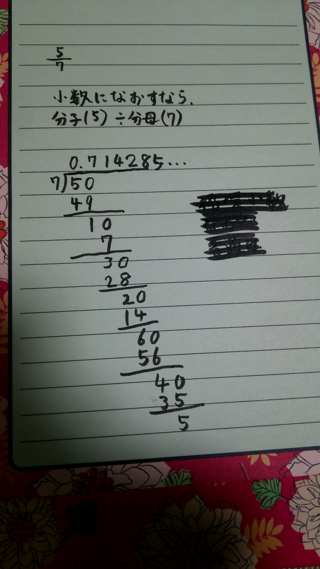 5
7
小数になおすなら、
分子(5)÷分母(7)
0.714285...
7)50
49
10
7
30
28
20
14
60
56
40
35
5